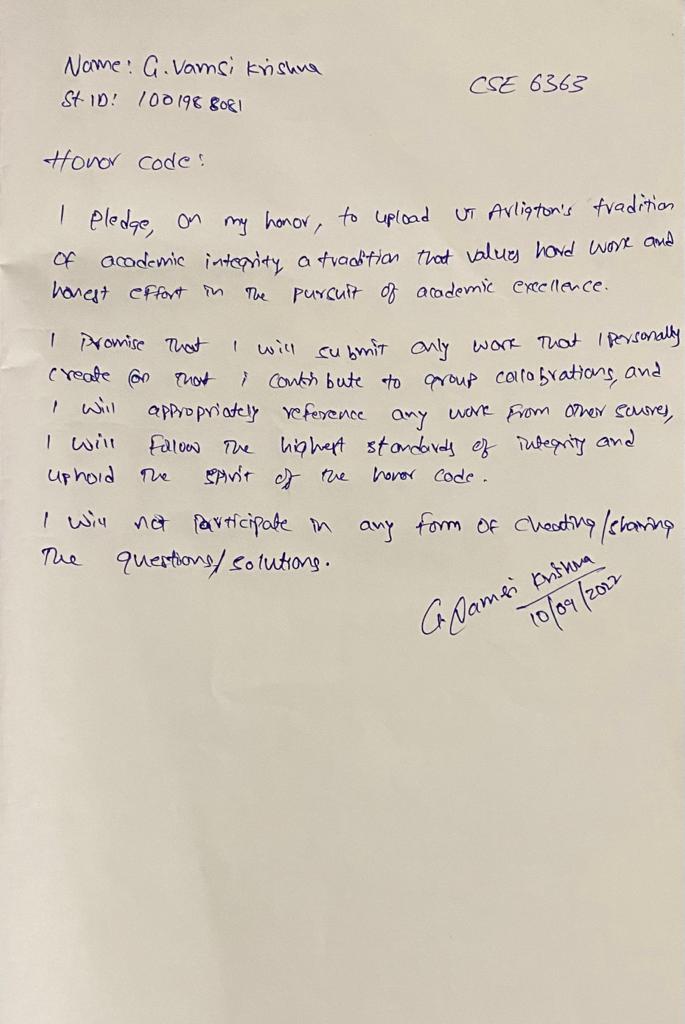 Name: G. Vamsi Krishna
CSE 6363
St ID: 100198 8081
Honor code:
I pledge, on my honor, to upload UT Arligton's tradition
of academic integrity a tradition that values hard work and
honest effort in the pursuit of academic excellence.
I Promise that I will submit only work that I personally
create or that i contribute to group collobrations, and
I will appropriately reference any work from other sources,
I will follow the highest standards of integrity and
uphold the spirit of the honor code.
I will not participate in any form of cheating/sharing
the questions/solutions.
G. Vamsi Krishna
10/09/2022